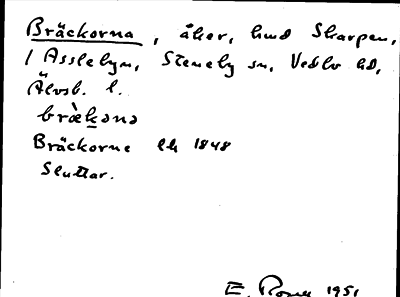 Bräckorna, åker, hmd Skarpen,
1 Asslebyn, Steneby sn, Vedbo hd,
Älvsb. l.
bræ̀kənə
Bräckorne lh 1848
Sluttar.
E. 1951